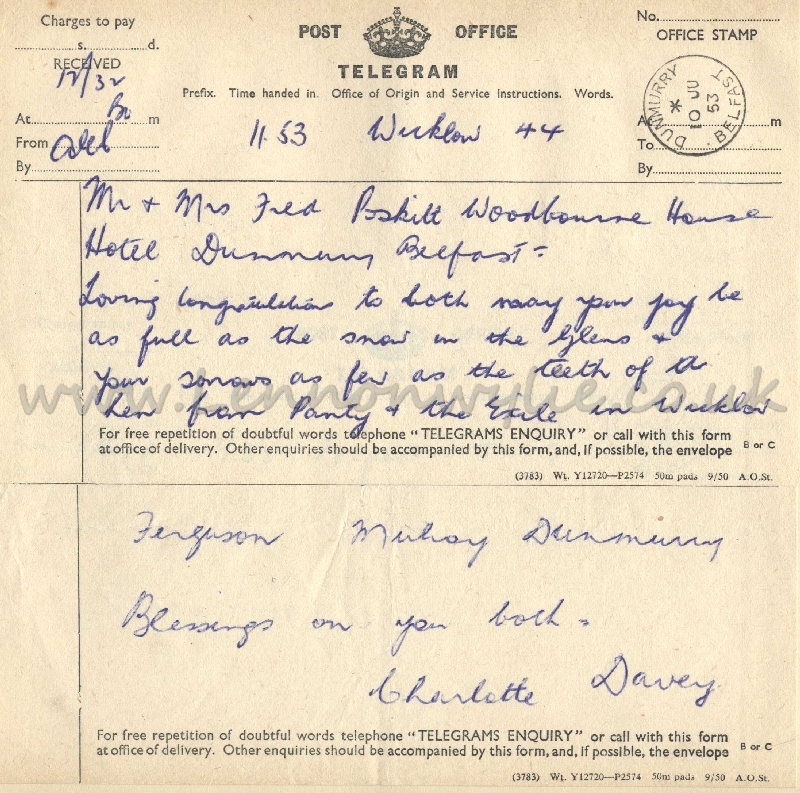 Charges to pay
s. d.
RECEIVED
12/32
At m
From
By
POST OFFICE
TELEGRAM
Prefix. Time handed in. Office of Origin and Service Instructions. Words.
11.53 Wicklow 44
No.
OFFICE STAMP
DUNMURRY BELFAST
* 10 JU 53
At m
To
By
Mr + Mrs Fred Poskitt Woodbourne House
Hotel Dunmurry Belfast =
Loving congratulations to both may your joy be
as full as the snow in the Glens +
your sorrows as few as the teeth of th
hen from Panty + the Exile in Wicklow
www.Lennonwylie.co.uk
For free repetition of doubtful words telephone "TELEGRAMS ENQUIRY" or call with this form
at office of delivery. Other enquiries should be accompanied by this form, and, if possible, the envelope
B or C
(3783) Wt. Y12720—P2574 50m pads 9/50 A.O.St.
Ferguson Dunmurry
Blessings on you both =
Charlotte Davey
For free repetition of doubtful words telephone "TELEGRAMS ENQUIRY" or call with this form
at office of delivery. Other enquiries should be accompanied by this form, and, if possible, the envelope
B or C
(3783) Wt. Y12720—P2574 50m pads 9/50 A.O.St.